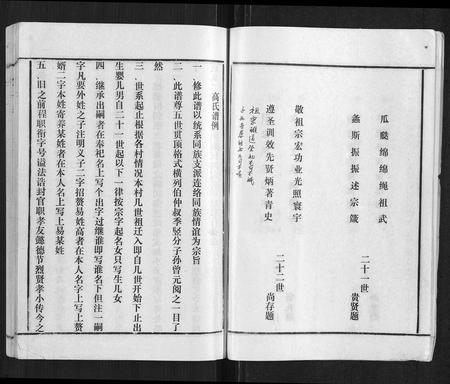 瓜瓞綿綿绳祖武
螽斯振振述宗箴
二十一世
贵贤题
敬祖宗宏功业光照寰宇
遵圣训效先贤炳著青史
二十二世
尚存题
祖宗雖遠祭祀
高氏谱例
一、修此谱以统系同族支派连络同族情谊为宗旨
二、此谱尊五世贯顶格式横列伯仲叔季竖分子孙曾元阅之一目了
然
三、世系起止根据各村情况本村几世祖迁入即自几世开始下止出
生婴儿男自二十一世起以下一律按宗字起名女只写生几女
四、继承出嗣者在奉祀名上写个出字过继谁即写谁名下但注一嗣
字凡要外姓之子注明义子二字招赘易姓高者在本人名字上写上赘
婿二字本姓寄养某姓者在本人名上写上易某姓
五、旧之前程职衔字号谥法诰封官职孝友懿德节烈贤孝小传今之